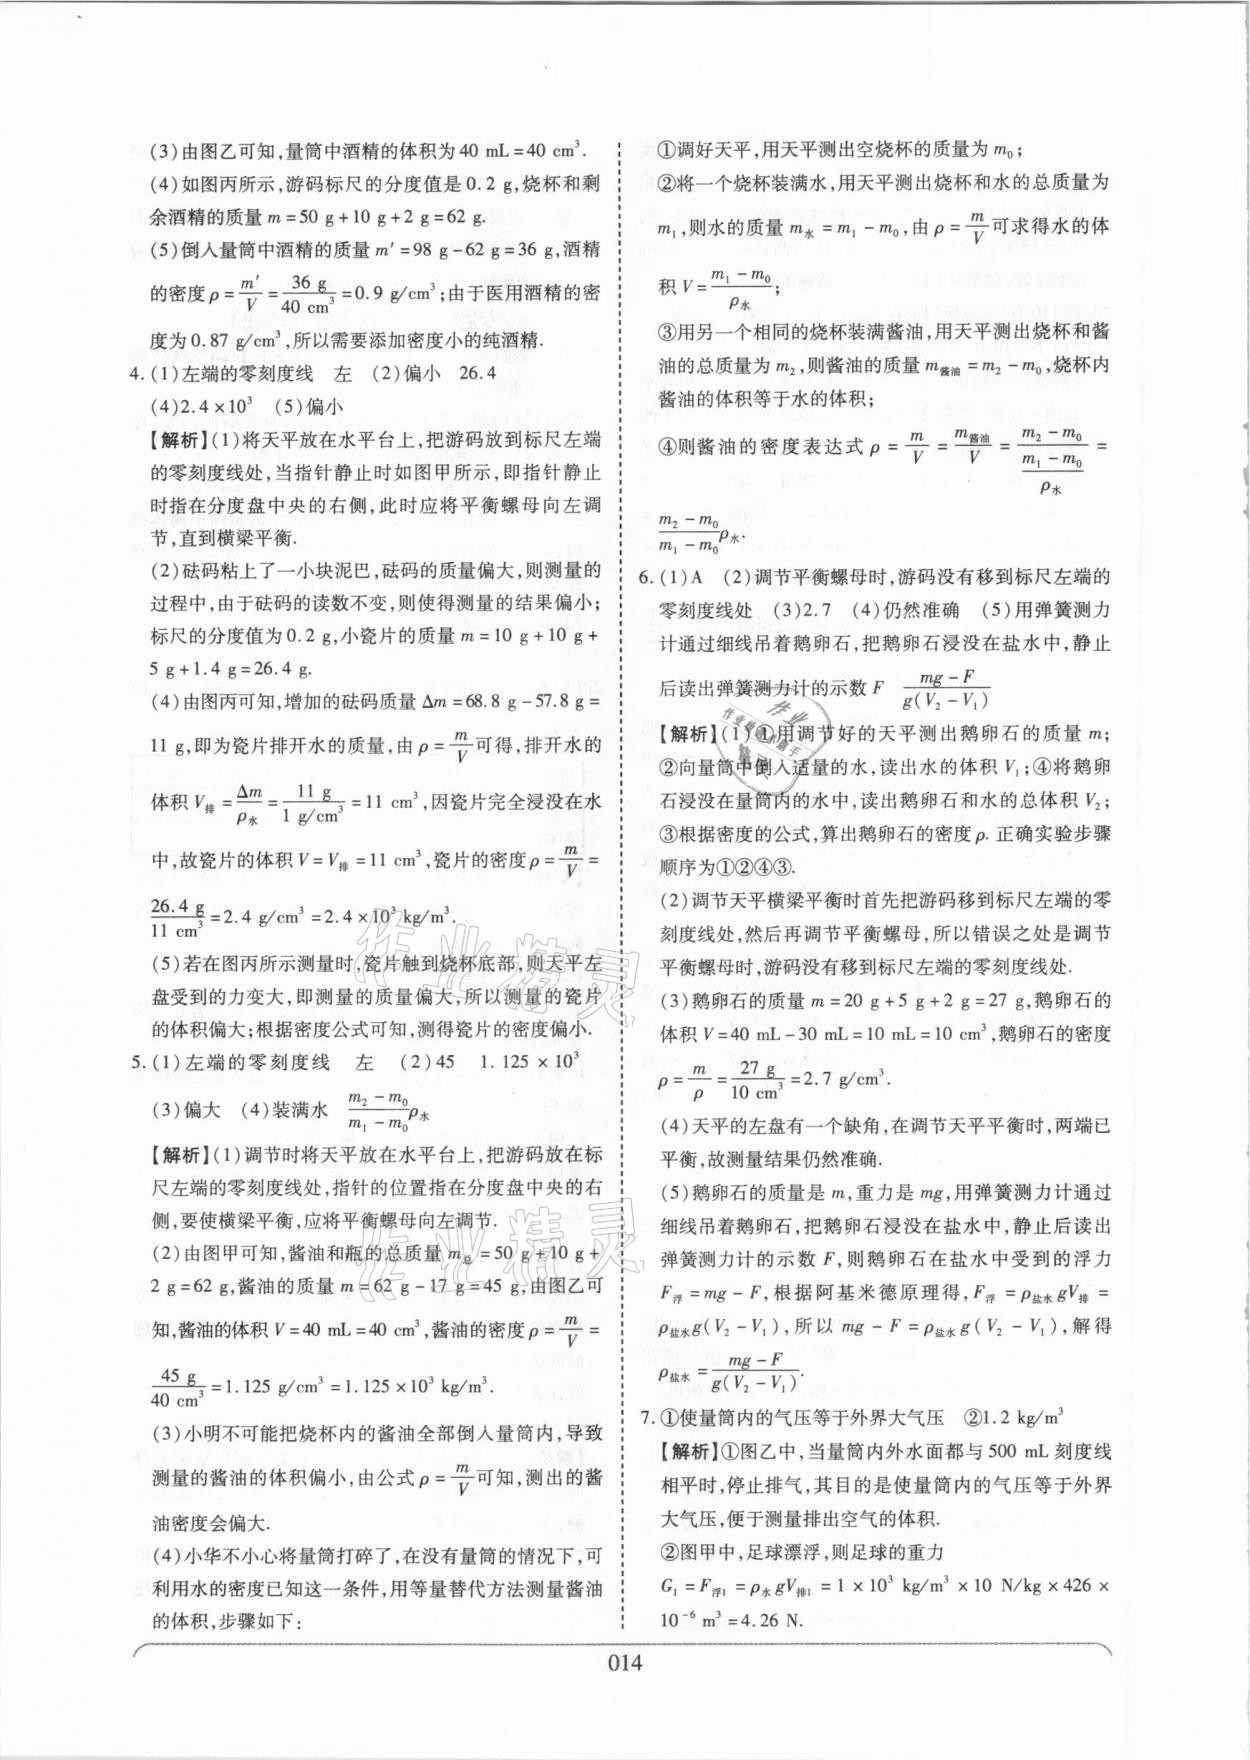 (3)由图乙可知,量筒中酒精的体积为40 mL=40 cm³.
(4)如图丙所示,游码标尺的分度值是0.2 g,烧杯和剩
余酒精的质量 m=50 g+10 g+2 g=62 g.
(5)倒入量筒中酒精的质量 m′=98 g-62 g=36 g,酒精
的密度 ρ=m′/V=36 g/40 cm³=0.9 g/cm³;由于医用酒精的密
度为0.87 g/cm³,所以需要添加密度小的纯酒精.
4.(1)左端的零刻度线 左 (2)偏小 26.4
(4)2.4×10³ (5)偏小
【解析】(1)将天平放在水平台上,把游码放到标尺左端
的零刻度线处,当指针静止时如图甲所示,即指针静止
时指在分度盘中央的右侧,此时应将平衡螺母向左调
节,直到横梁平衡.
(2)砝码粘上了一小块泥巴,砝码的质量偏大,则测量的
过程中,由于砝码的读数不变,则使得测量的结果偏小;
标尺的分度值为0.2 g,小瓷片的质量 m=10 g+10 g+
5 g+1.4 g=26.4 g.
(4)由图丙可知,增加的砝码质量 Δm=68.8 g-57.8 g=
11 g,即为瓷片排开水的质量,由 ρ=m/V可得,排开水的
体积 V排=Δm/ρ水=11 g/1 g/cm³=11 cm³,因瓷片完全浸没在水
中,故瓷片的体积 V=V排=11 cm³,瓷片的密度 ρ=m/V=
26.4 g/11 cm³=2.4 g/cm³=2.4×10³ kg/m³.
(5)若在图丙所示测量时,瓷片触到烧杯底部,则天平左
盘受到的力变大,即测量的质量偏大,所以测量的瓷片
的体积偏大;根据密度公式可知,测得瓷片的密度偏小.
5.(1)左端的零刻度线 左 (2)45 1.125×10³
(3)偏大 (4)装满水 (m₂-m₀)/(m₁-m₀)ρ水
【解析】(1)调节时将天平放在水平台上,把游码放在标
尺左端的零刻度线处,指针的位置指在分度盘中央的右
侧,要使横梁平衡,应将平衡螺母向左调节.
(2)由图甲可知,酱油和瓶的总质量 m总=50 g+10 g+
2 g=62 g,酱油的质量 m=62 g-17 g=45 g,由图乙可
知,酱油的体积 V=40 mL=40 cm³,酱油的密度 ρ=m/V=
45 g/40 cm³=1.125 g/cm³=1.125×10³ kg/m³.
(3)小明不可能把烧杯内的酱油全部倒入量筒内,导致
测量的酱油的体积偏小,由公式 ρ=m/V可知,测出的酱
油密度会偏大.
(4)小华不小心将量筒打碎了,在没有量筒的情况下,可
利用水的密度已知这一条件,用等量替代方法测量酱油
的体积,步骤如下:
①调好天平,用天平测出空烧杯的质量为 m₀;
②将一个烧杯装满水,用天平测出烧杯和水的总质量为
m₁,则水的质量 m水=m₁-m₀,由 ρ=m/V可求得水的体
积 V=(m₁-m₀)/ρ水;
③用另一个相同的烧杯装满酱油,用天平测出烧杯和酱
油的总质量为 m₂,则酱油的质量 m酱油=m₂-m₀,烧杯内
酱油的体积等于水的体积;
④则酱油的密度表达式 ρ=m/V=m酱油/V=(m₂-m₀)/((m₁-m₀)/ρ水)=
(m₂-m₀)/(m₁-m₀)ρ水.
6.(1)A (2)调节平衡螺母时,游码没有移到标尺左端的
零刻度线处 (3)2.7 (4)仍然准确 (5)用弹簧测力
计通过细线吊着鹅卵石,把鹅卵石浸没在盐水中,静止
后读出弹簧测力计的示数 F (mg-F)/g(V₂-V₁)
【解析】(1)①用调节好的天平测出鹅卵石的质量 m;
②向量筒中倒入适量的水,读出水的体积 V₁;④将鹅卵
石浸没在量筒内的水中,读出鹅卵石和水的总体积 V₂;
③根据密度的公式,算出鹅卵石的密度 ρ. 正确实验步骤
顺序为①②④③.
(2)调节天平横梁平衡时首先把游码移到标尺左端的零
刻度线处,然后再调节平衡螺母,所以错误之处是调节
平衡螺母时,游码没有移到标尺左端的零刻度线处.
(3)鹅卵石的质量 m=20 g+5 g+2 g=27 g,鹅卵石的
体积 V=40 mL-30 mL=10 mL=10 cm³,鹅卵石的密度
ρ=m/ρ=27 g/10 cm³=2.7 g/cm³.
(4)天平的左盘有一个缺角,在调节天平平衡时,两端已
平衡,故测量结果仍然准确.
(5)鹅卵石的质量是 m,重力是 mg,用弹簧测力计通过
细线吊着鹅卵石,把鹅卵石浸没在盐水中,静止后读出
弹簧测力计的示数 F,则鹅卵石在盐水中受到的浮力
F浮=mg-F,根据阿基米德原理得,F浮=ρ盐水gV排=
ρ盐水g(V₂-V₁),所以 mg-F=ρ盐水g(V₂-V₁),解得
ρ盐水=(mg-F)/g(V₂-V₁).
7.①使量筒内的气压等于外界大气压 ②1.2 kg/m³
【解析】①图乙中,当量筒内外水面都与500 mL刻度线
相平时,停止排气,其目的是使量筒内的气压等于外界
大气压,便于测量排出空气的体积.
②图甲中,足球漂浮,则足球的重力
G₁=F浮1=ρ水gV排1=1×10³ kg/m³×10 N/kg×426×
10⁻⁶ m³=4.26 N.
014
作业精灵
作业精灵